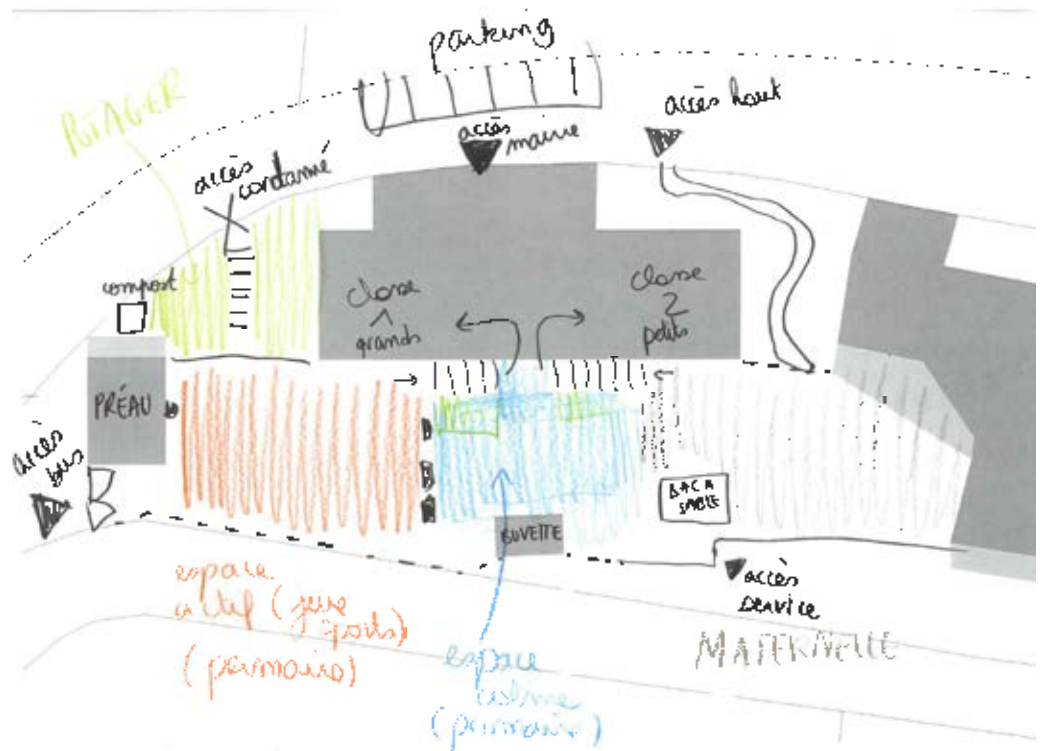 parking
POTAGER
accès
condamné
accès
mairie
accès haut
compost
classe
1
grands
classe
2
petits
PRÉAU
accès
bus
BAC A
SABLE
BUVETTE
accès
service
espace
actif (jeux
sports)
(primaire)
espace
calme
(primaire)
MATERNELLE